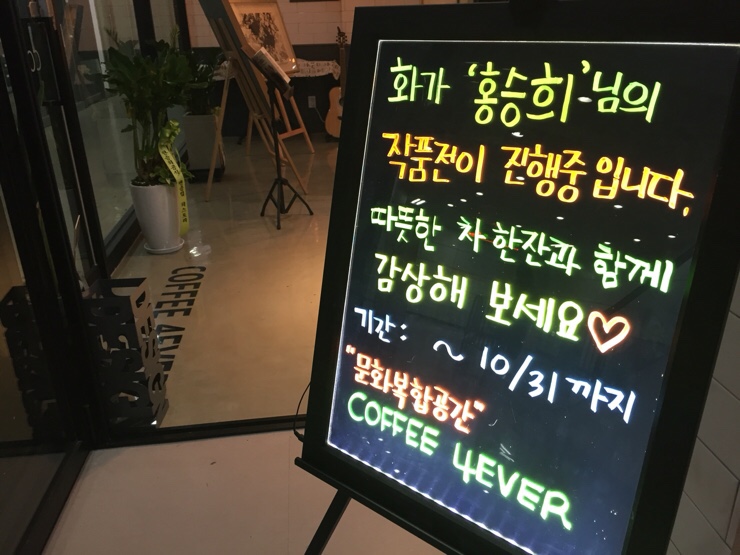 화가 '홍승희'님의
작품전이 진행중입니다.
따뜻한 차 한잔과 함께
감상해 보세요♡
기간 : ~ 10/31 까지
"문화복합공간"
COFFEE 4EVER
COFFEE 4EVER